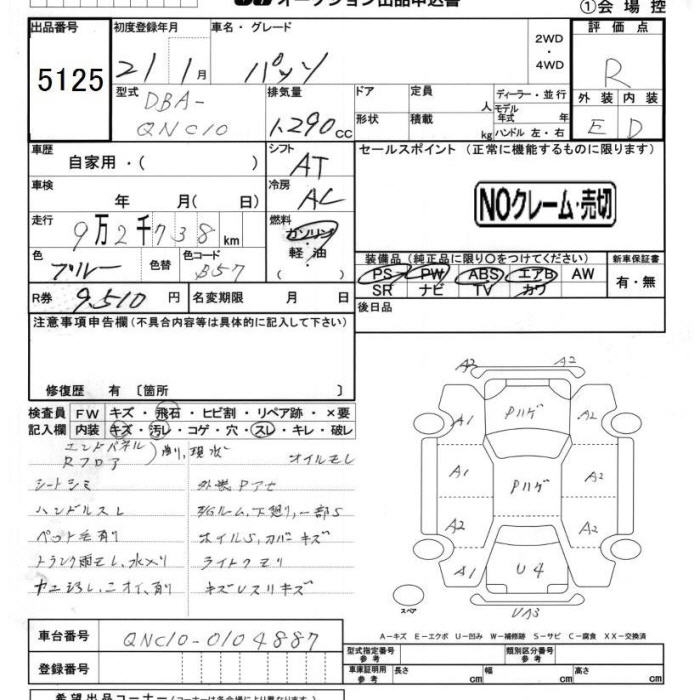 オークション出品申込書
①会場控
出品番号 初度登録年月 車名・グレード 2WD ・ 4WD 評価点
5125 21 1月 パッソ R
型式 DBA-QNC10 排気量 1,290cc ドア 定員 人 ディーラー・並行 外装 内装
形状 積載 kg モデル年式 年 ハンドル 左・右 E D
車歴 自家用・( ) シフト AT セールスポイント (正常に機能するものに限ります)
車検 年 月( 日) 冷房 AC NOクレーム・売切
走行 9万2千738km 燃料 ガソリン 軽・油
色 ブルー 色替 色コード B57 装備品 (純正品に限り○をつけてください) 新車保証書
PS PW ABS エアB AW 有・無
SR ナビ TV カワ
R券 9,510円 名変期限 月 日 後日品
注意事項申告欄(不具合内容等は具体的に記入して下さい)
修復歴 有 〔箇所 〕
検査員 FW キズ・飛石・ヒビ割・リペア跡・×要
記入欄 内装 キズ・汚レ・コゲ・穴・スレ・キレ・破レ
エンドパネル
Rフロア オイルモレ
シートシミ
ハンドルスレ
ペット毛有り
トランク雨モレ、水入り ライトクモリ
A2 A2
A1 Pハゲ A2
A1 Pハゲ A2
A2 A2
A1 U4 A1
スペア UA3
A-キズ E-エクボ U-凹み W-補修跡 S-サビ C-腐食 XX-交換済
車台番号 QNC10-0104887 型式指定番号 参考 類別区分番号 参考
登録番号 車庫証明用 参考 長さ cm 幅 cm 高さ cm
希望出品コーナー(コーナーは各会場により異なります)